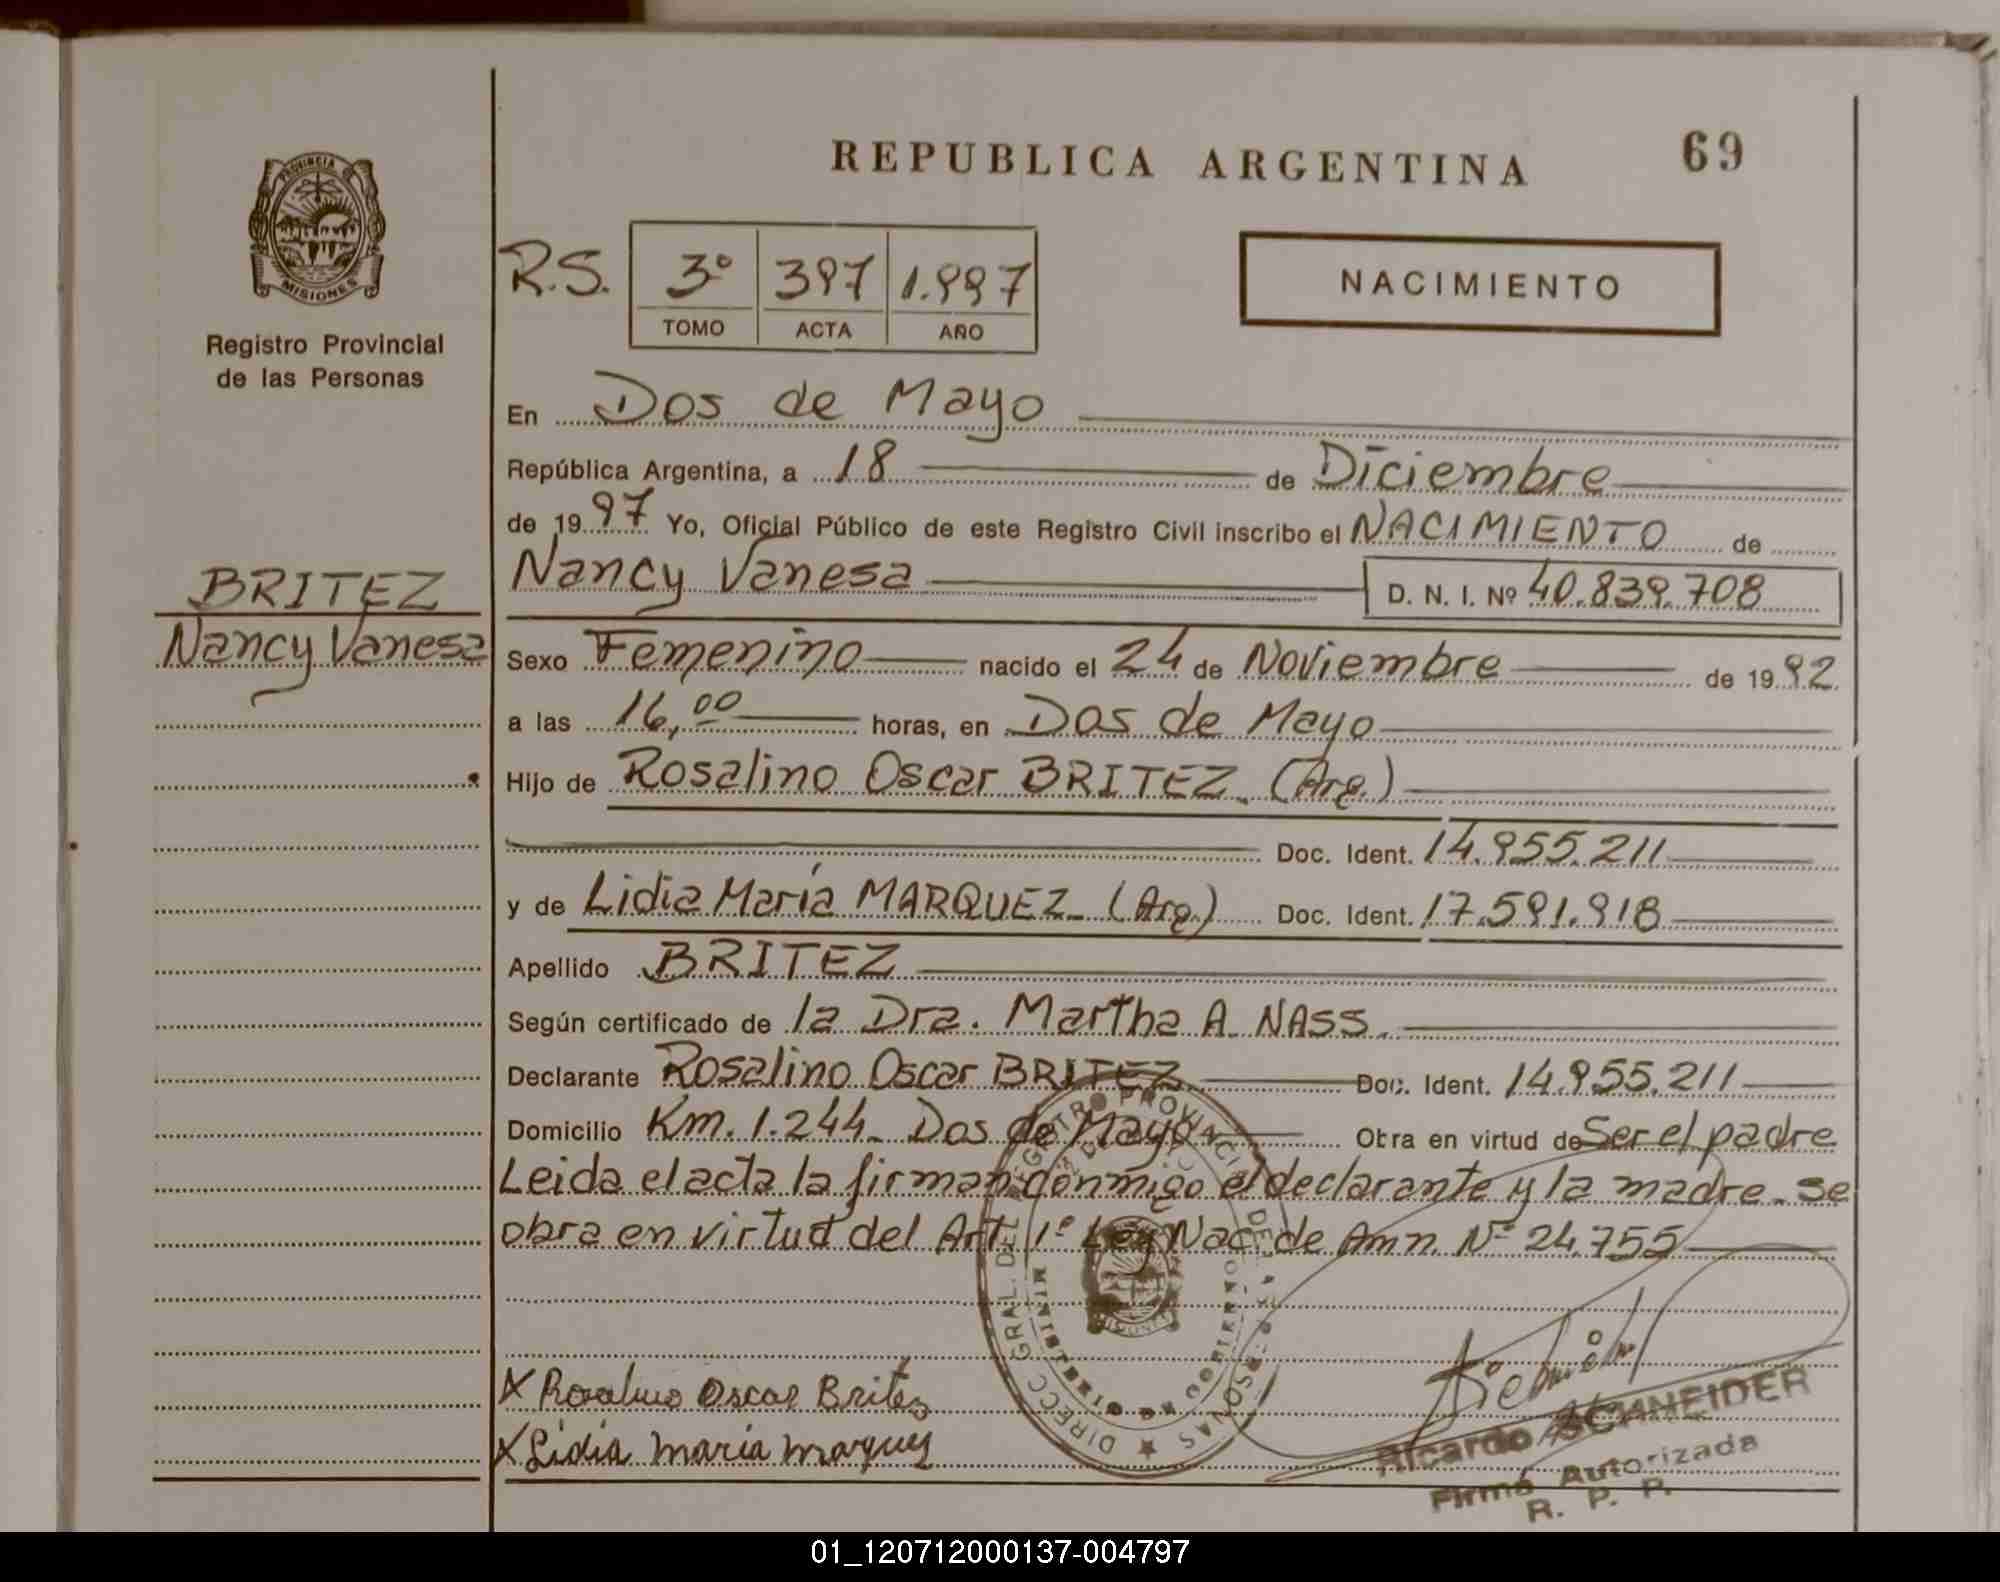 REPUBLICA ARGENTINA
69
PROVINCIA
MISIONES
Registro Provincial
de las Personas
R.S.
3º 397 1.997
TOMO ACTA AÑO
NACIMIENTO
En Dos de Mayo
República Argentina, a 18 de Diciembre
de 1997 Yo, Oficial Público de este Registro Civil inscribo el NACIMIENTO de
Nancy Vanesa D. N. I. Nº 40.839.708
BRITEZ
Nancy Vanesa
Sexo Femenino nacido el 24 de Noviembre de 1992
a las 16,00 horas, en Dos de Mayo
Hijo de Rosalino Oscar BRITEZ (Arg.)
Doc. Ident. 14.955.211
y de Lidia María MARQUEZ (Arg.) Doc. Ident. 17.591.918
Apellido BRITEZ
Según certificado de la Dra. Martha A. NASS.
Declarante Rosalino Oscar BRITEZ Doc. Ident. 14.955.211
Domicilio Km. 1.244 Dos de Mayo Obra en virtud de Ser el padre
Leida el acta la firman conmigo el declarante y la madre. se
obra en virtud del Art. 1º Ley Nac. de Amn. Nº 24.755
DIRECC GRAL. DEL REGISTRO PROVINCIAL DE LAS PERSONAS
MINISTERIO DE GOBIERNO
MISIONES
x Rosalino Oscar Britez
x Lidia maria marquez
Ricardo SCHNEIDER
Firma Autorizada
R. P. P.
01_120712000137-004797